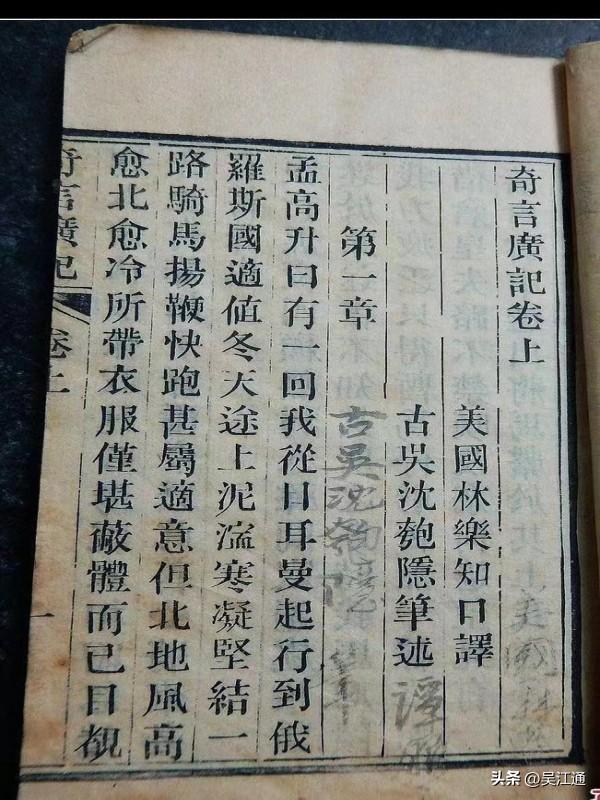 奇言廣記卷上
美國林樂知口譯
古吳沈匏隱筆述
第一章
孟高升曰有一回我從日耳曼起行到俄
羅斯國適值冬天途上泥濘寒凝堅結一
路騎馬揚鞭快跑甚屬適意但北地風高
愈北愈冷所帶衣服僅堪蔽體而已目覩
奇言廣記 卷上 一
古吳沈匏隱
头条 @吴江通